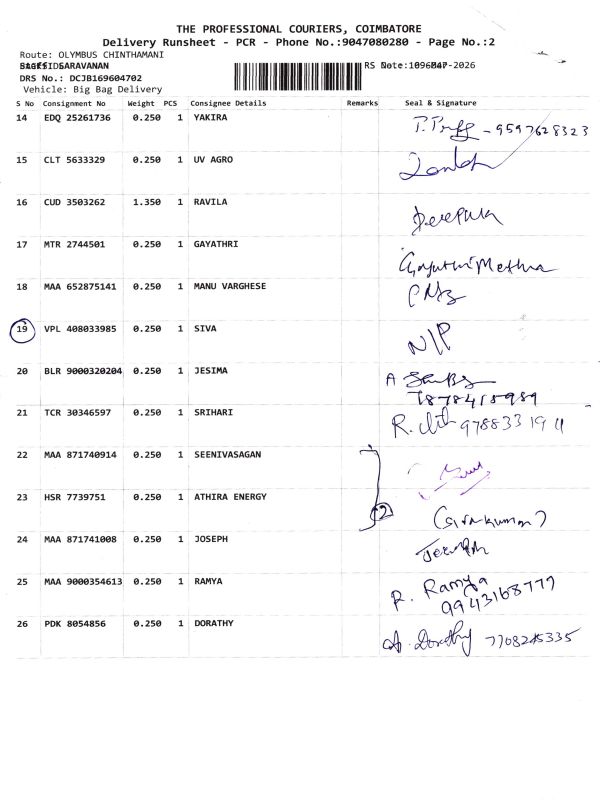 THE PROFESSIONAL COURIERS, COIMBATORE
Delivery Runsheet - PCR - Phone No.:9047080280 - Page No.:2
Route: OLYMBUS CHINTHAMANI
SARAVANAN
DRS No.: DCJB169604702
Vehicle: Big Bag Delivery
S No Consignment No Weight PCS Consignee Details Remarks Seal & Signature
14 EDQ 25261736 0.250 1 YAKIRA 9597628323
15 CLT 5633329 0.250 1 UV AGRO
16 CUD 3503262 1.350 1 RAVILA Deepika
17 MTR 2744501 0.250 1 GAYATHRI
18 MAA 652875141 0.250 1 MANU VARGHESE
19 VPL 408033985 0.250 1 SIVA N/P
20 BLR 9000320204 0.250 1 JESIMA A
7878415989
21 TCR 30346597 0.250 1 SRIHARI R. 978833 1911
22 MAA 871740914 0.250 1 SEENIVASAGAN
23 HSR 7739751 0.250 1 ATHIRA ENERGY 2 (Sivakumar)
24 MAA 871741008 0.250 1 JOSEPH
25 MAA 9000354613 0.250 1 RAMYA R. Ramya
9943168779
26 PDK 8054856 0.250 1 DORATHY A. Dorathy 7708245335